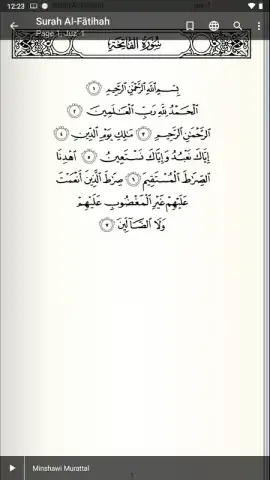 12:23
Surah Al-Fātihah
Page 1, Juz' 1
سُورَةُ الفَاتِحَةِ
بِسْمِ ٱللَّهِ ٱلرَّحْمَٰنِ ٱلرَّحِيمِ ١
ٱلْحَمْدُ لِلَّهِ رَبِّ ٱلْعَٰلَمِينَ ٢
ٱلرَّحْمَٰنِ ٱلرَّحِيمِ ٣ مَٰلِكِ يَوْمِ ٱلدِّينِ ٤
إِيَّاكَ نَعْبُدُ وَإِيَّاكَ نَسْتَعِينُ ٥ ٱهْدِنَا
ٱلصِّرَٰطَ ٱلْمُسْتَقِيمَ ٦ صِرَٰطَ ٱلَّذِينَ أَنْعَمْتَ
عَلَيْهِمْ غَيْرِ ٱلْمَغْضُوبِ عَلَيْهِمْ
وَلَا ٱلضَّآلِّينَ ٧
Minshawi Murattal
1